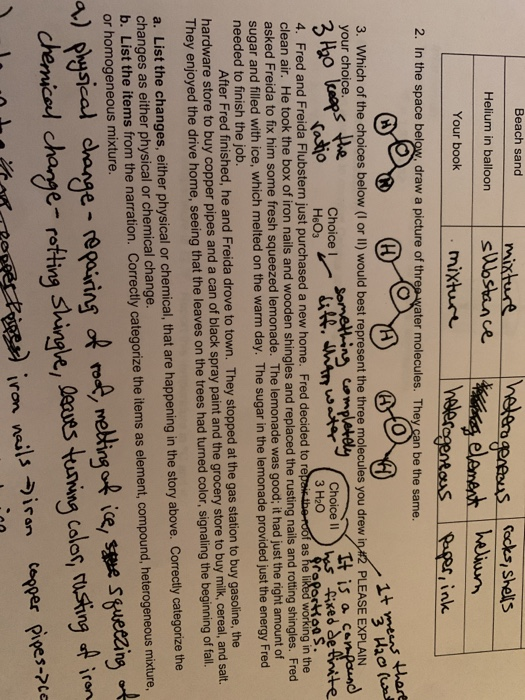 Beach sand mixture heterogeneous rocks, shells
Helium in balloon substance element helium
Your book mixture heterogeneous paper, ink
2. In the space below, draw a picture of three water molecules. They can be the same.
H O H H O H H O H
3. Which of the choices below (I or II) would best represent the three molecules you drew in #2 PLEASE EXPLAIN
your choice.
It means there
3 H2O
3 H2O keeps the
ratio
Choice I
H6O3
something completely
diff. than water
Choice II
3 H2O
It is a compound
has fixed definite
proportions.
4. Fred and Freida Flubstern just purchased a new home. Fred decided to repair the roof as he liked working in the
clean air. He took the box of iron nails and wooden shingles and replaced the rusting nails and rotting shingles. Fred
asked Freida to fix him some fresh squeezed lemonade. The lemonade was good; it had just the right amount of
sugar and filled with ice, which melted on the warm day. The sugar in the lemonade provided just the energy Fred
needed to finish the job.
After Fred finished, he and Freida drove to town. They stopped at the gas station to buy gasoline, the
hardware store to buy copper pipes and a can of black spray paint and the grocery store to buy milk, cereal, and salt.
They enjoyed the drive home, seeing that the leaves on the trees had turned color, signaling the beginning of fall.
a. List the changes, either physical or chemical, that are happening in the story above. Correctly categorize the
changes as either physical or chemical change.
b. List the items from the narration. Correctly categorize the items as element, compound, heterogeneous mixture,
or homogeneous mixture.
a) physical change - repairing of roof, melting of ice, squeezing of
chemical change - rotting shingle, leaves turning color, rusting of iron
iron nails → iron copper pipes →